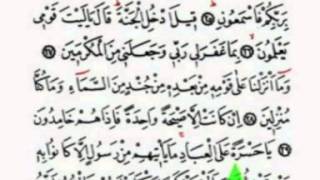 بِرَبِّكُمْ فَاسْمَعُونِ ﴿٢٥﴾ قِيلَ ادْخُلِ الْجَنَّةَ ۖ قَالَ يَا لَيْتَ قَوْمِي
يَعْلَمُونَ ﴿٢٦﴾ بِمَا غَفَرَ لِي رَبِّي وَجَعَلَنِي مِنَ الْمُكْرَمِينَ ﴿٢٧﴾
وَمَا أَنْزَلْنَا عَلَى قَوْمِهِ مِنْ بَعْدِهِ مِنْ جُنْدٍ مِنَ السَّمَاءِ وَمَا كُنَّا
مُنْزِلِينَ ﴿٢٨﴾ إِنْ كَانَتْ إِلَّا صَيْحَةً وَاحِدَةً فَإِذَا هُمْ خَامِدُونَ
﴿٢٩﴾ يَا حَسْرَةً عَلَى الْعِبَادِ مَا يَأْتِيهِمْ مِنْ رَسُولٍ إِلَّا كَانُوا بِهِ